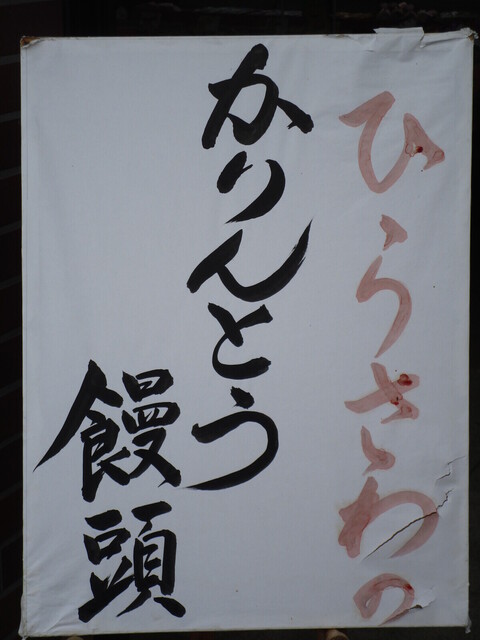 ひらさわの
かりんとう
饅頭